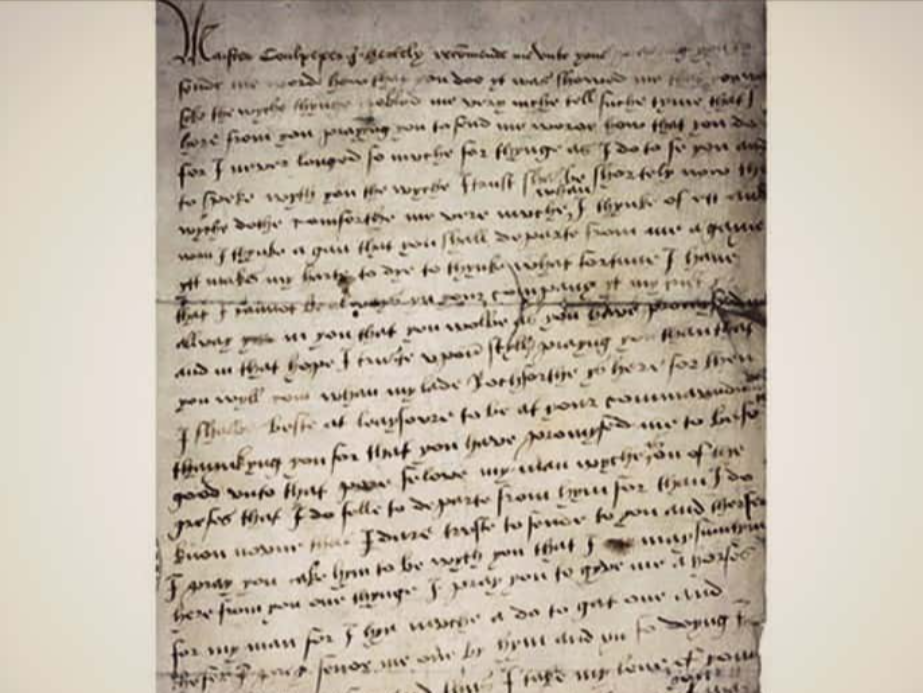 Maister Coulpeper I hertely recomende me unto youe praying you to
sende me worde how that you doo yt was showed me that you was
syke the wyche thynge trobled me very muche tell suche tyme that I
here from you praying you to send me worde how that you do
for I never longed so muche for thynge as I do to se you and
to speke wyth you the wyche I trust shal be shortely now the
wyche dothe comforthe me verie muche whan I thynke of ett and
wan I thynke agan that you shall departe from me agane
ytt makes my harte to dye to thynke what fortune I have
that I cannot be always yn your company yt my trust ys
allway in you that you wolbe as you have promysed me
and in that hope I truste upon styll prayng you than that
you wyll com whan my lade Rochforthe ys here for then
I shalbe beste at leaysoure to be at your commaundmant
thaynkyng you for that you have promysed me to be so
good unto that pore felowe my man wyche is on of the
grefes that I do felle to departe from hym for than I do
know noone that I dare truste to sende to you and therfor
I pray you take hym to be wyth you that I may sumtym
here from you one thynge I pray you to gyve me a horse
for my man for I hyd muche a do to gat one and
thefer I pray sende me one by hym and yn so doying I
I take my leve of you